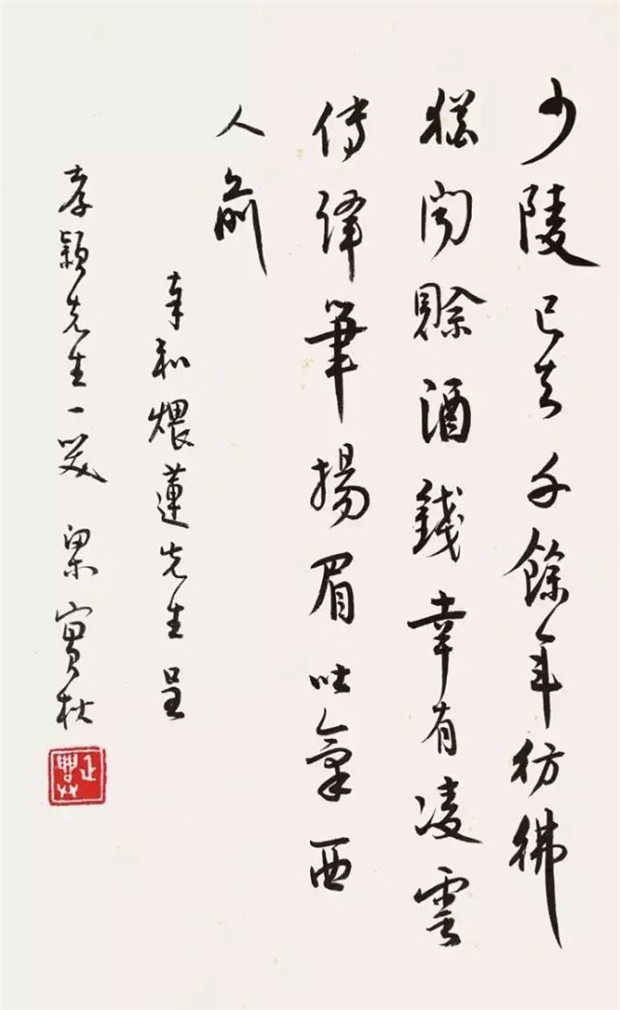 少陵已去千餘年彷彿
猶聞賒酒錢幸有凌雲
傳譯筆揚眉吐氣西
人前
奉和煨蓮先生呈
孝穎先生一笑 梁實秋